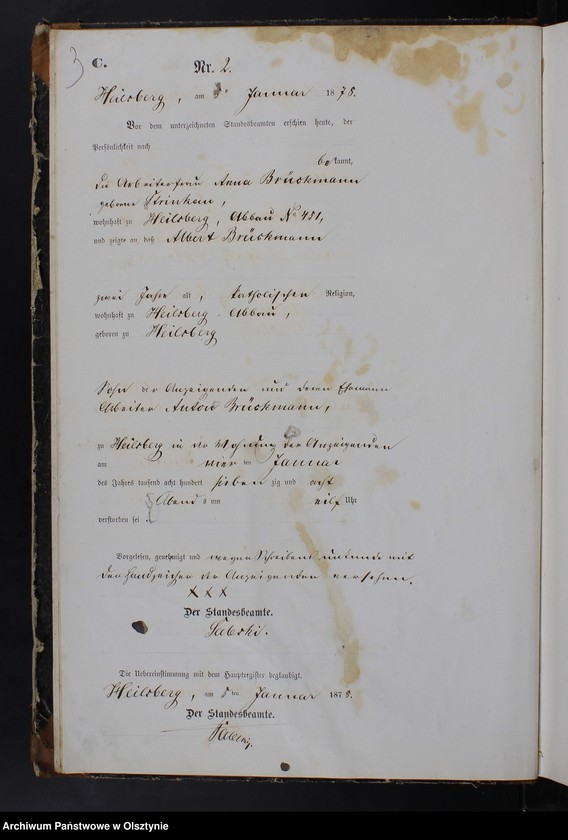 3
C.
Nr. 2.
Heilsberg, am 5. Januar 1878.
Vor dem unterzeichneten Standesbeamten erschien heute, der
Persönlichkeit nach
bekannt,
die Arbeiterfrau Anna Brückmann
geborene
wohnhaft zu Heilsberg, Abbau No 481,
und zeigte an, daß Albert Brückmann
zwei Jahre alt, katholischer Religion,
wohnhaft zu Heilsberg Abbau,
geboren zu Heilsberg
Sohn der Anzeigenden und deren Ehemann
Arbeiter Anton Brückmann,
zu Heilsberg in der Wohnung der Anzeigenden
am vierten Januar
des Jahrs tausend acht hundert siebenzig und acht
Abends um eilf Uhr
verstorben sei.
Vorgelesen, genehmigt und wegen Schreibensunkunde mit
den Handzeichen der Anzeigenden versehen.
x x x
Der Standesbeamte.
Die Uebereinstimmung mit dem Hauptregister beglaubigt.
Heilsberg, am 5ten Januar 1878.
Der Standesbeamte.
Archiwum Państwowe w Olsztynie